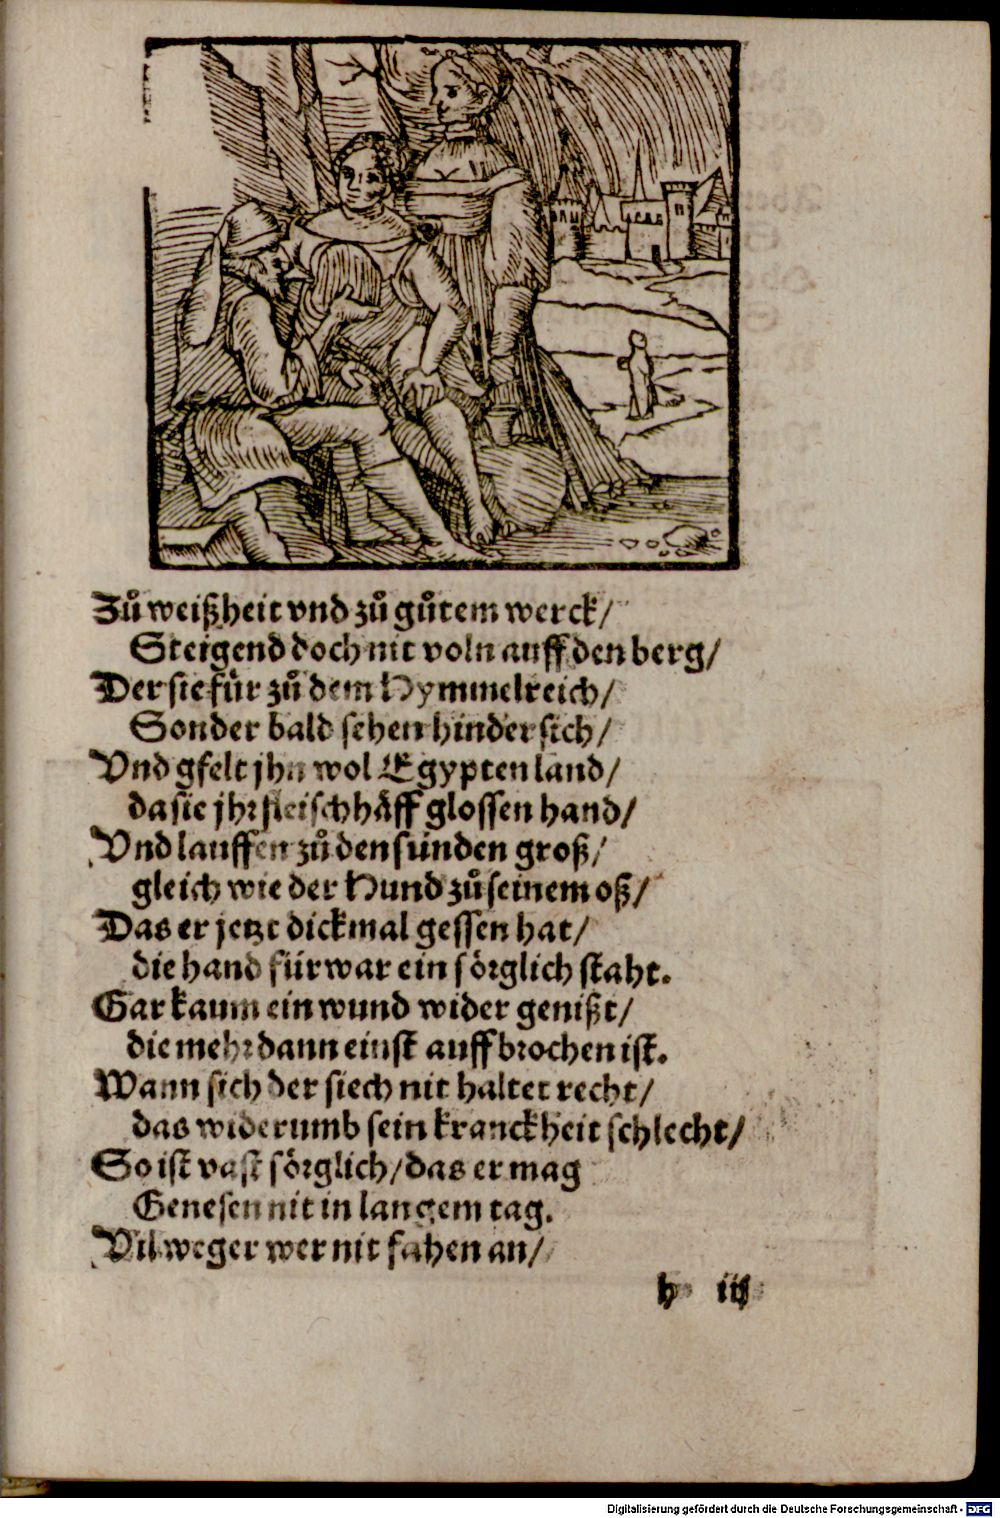 Zů weißheit vnd zů gůtem werck/
Steigend doch nit voln auff den berg/
Der sie für zů dem Hymmelreich/
Sonder bald sehen hinder sich/
Vnd gfelt jhn wol Egypten land/
da sie jhr fleischhäff glossen hand/
Vnd lauffen zů den sünden groß/
gleich wie der Hund zů seinem oß/
Das er jetzt dickmal gessen hat/
die hand fürwar ein sörglich staht.
Gar kaum ein wund wider genißt/
die mehr dann einst auffbrochen ist.
Wann sich der siech nit haltet recht/
das widerumb sein kranckheit schlecht/
So ist vast sörglich/ das er mag
Genesen nit in langem tag.
Vil weger wer nit fahen an/
h iij
Digitalisierung gefördert durch die Deutsche Forschungsgemeinschaft - DFG